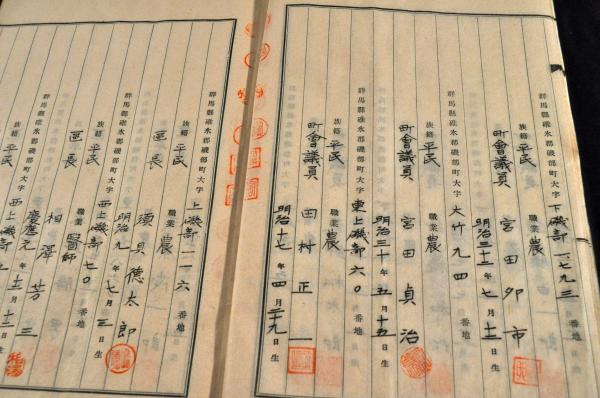 群馬縣碓氷郡磯部町大字 下磯部一、七九三
族籍 平民 職業 農
町會議員 宮田卯市
明治三十三年七月十二日生
群馬縣碓氷郡磯部町大字 大竹九四
族籍 平民 職業 農
町會議員 宮田貞治
明治三十年五月十五日生
群馬縣碓氷郡磯部町大字 東上磯部六〇番地
族籍 平民 職業 農
町會議員 田村正一
明治十七年四月二十九日生
群馬縣碓氷郡磯部町大字 上磯部一一六番地
族籍 平民 職業 農
區長 須貝德太郎
明治九年七月三日生
群馬縣碓氷郡磯部町大字 西上磯部七〇番地
族籍 平民 職業 醫師
區長 相澤芳三
慶應元年十二月十三日生
群馬縣碓氷郡磯部町大字 西上磯部